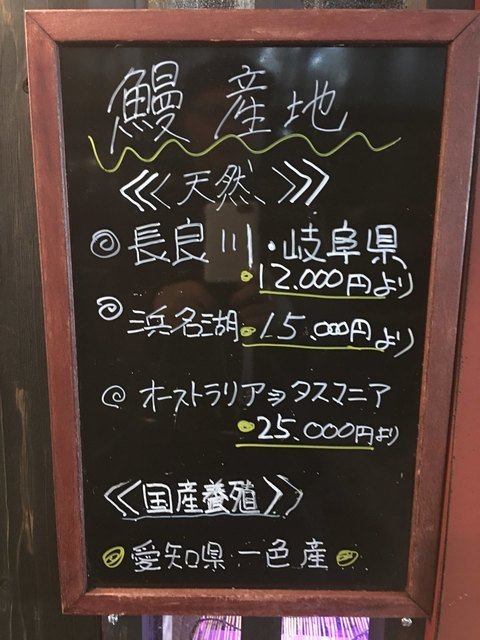 鰻 産地
《天然》
長良川・岐阜県
12.000円より
浜名湖
15.000円より
オーストラリア⇒タスマニア
25.000円より
《国産養殖》
愛知県 一色産